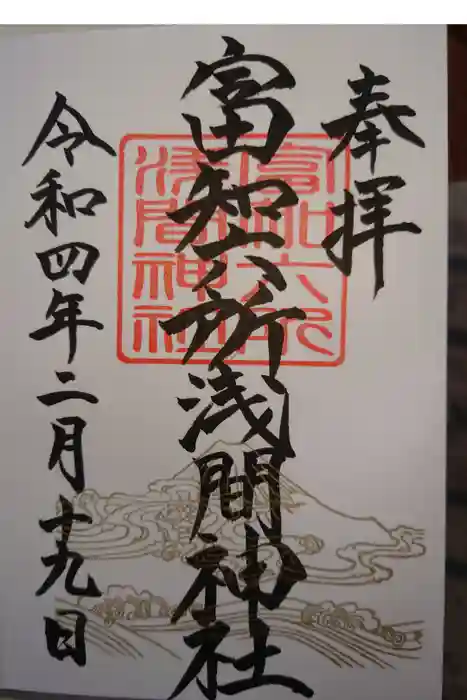 奉拝
富知六所浅間神社
富知六所
浅間神社
令和四年二月十九日